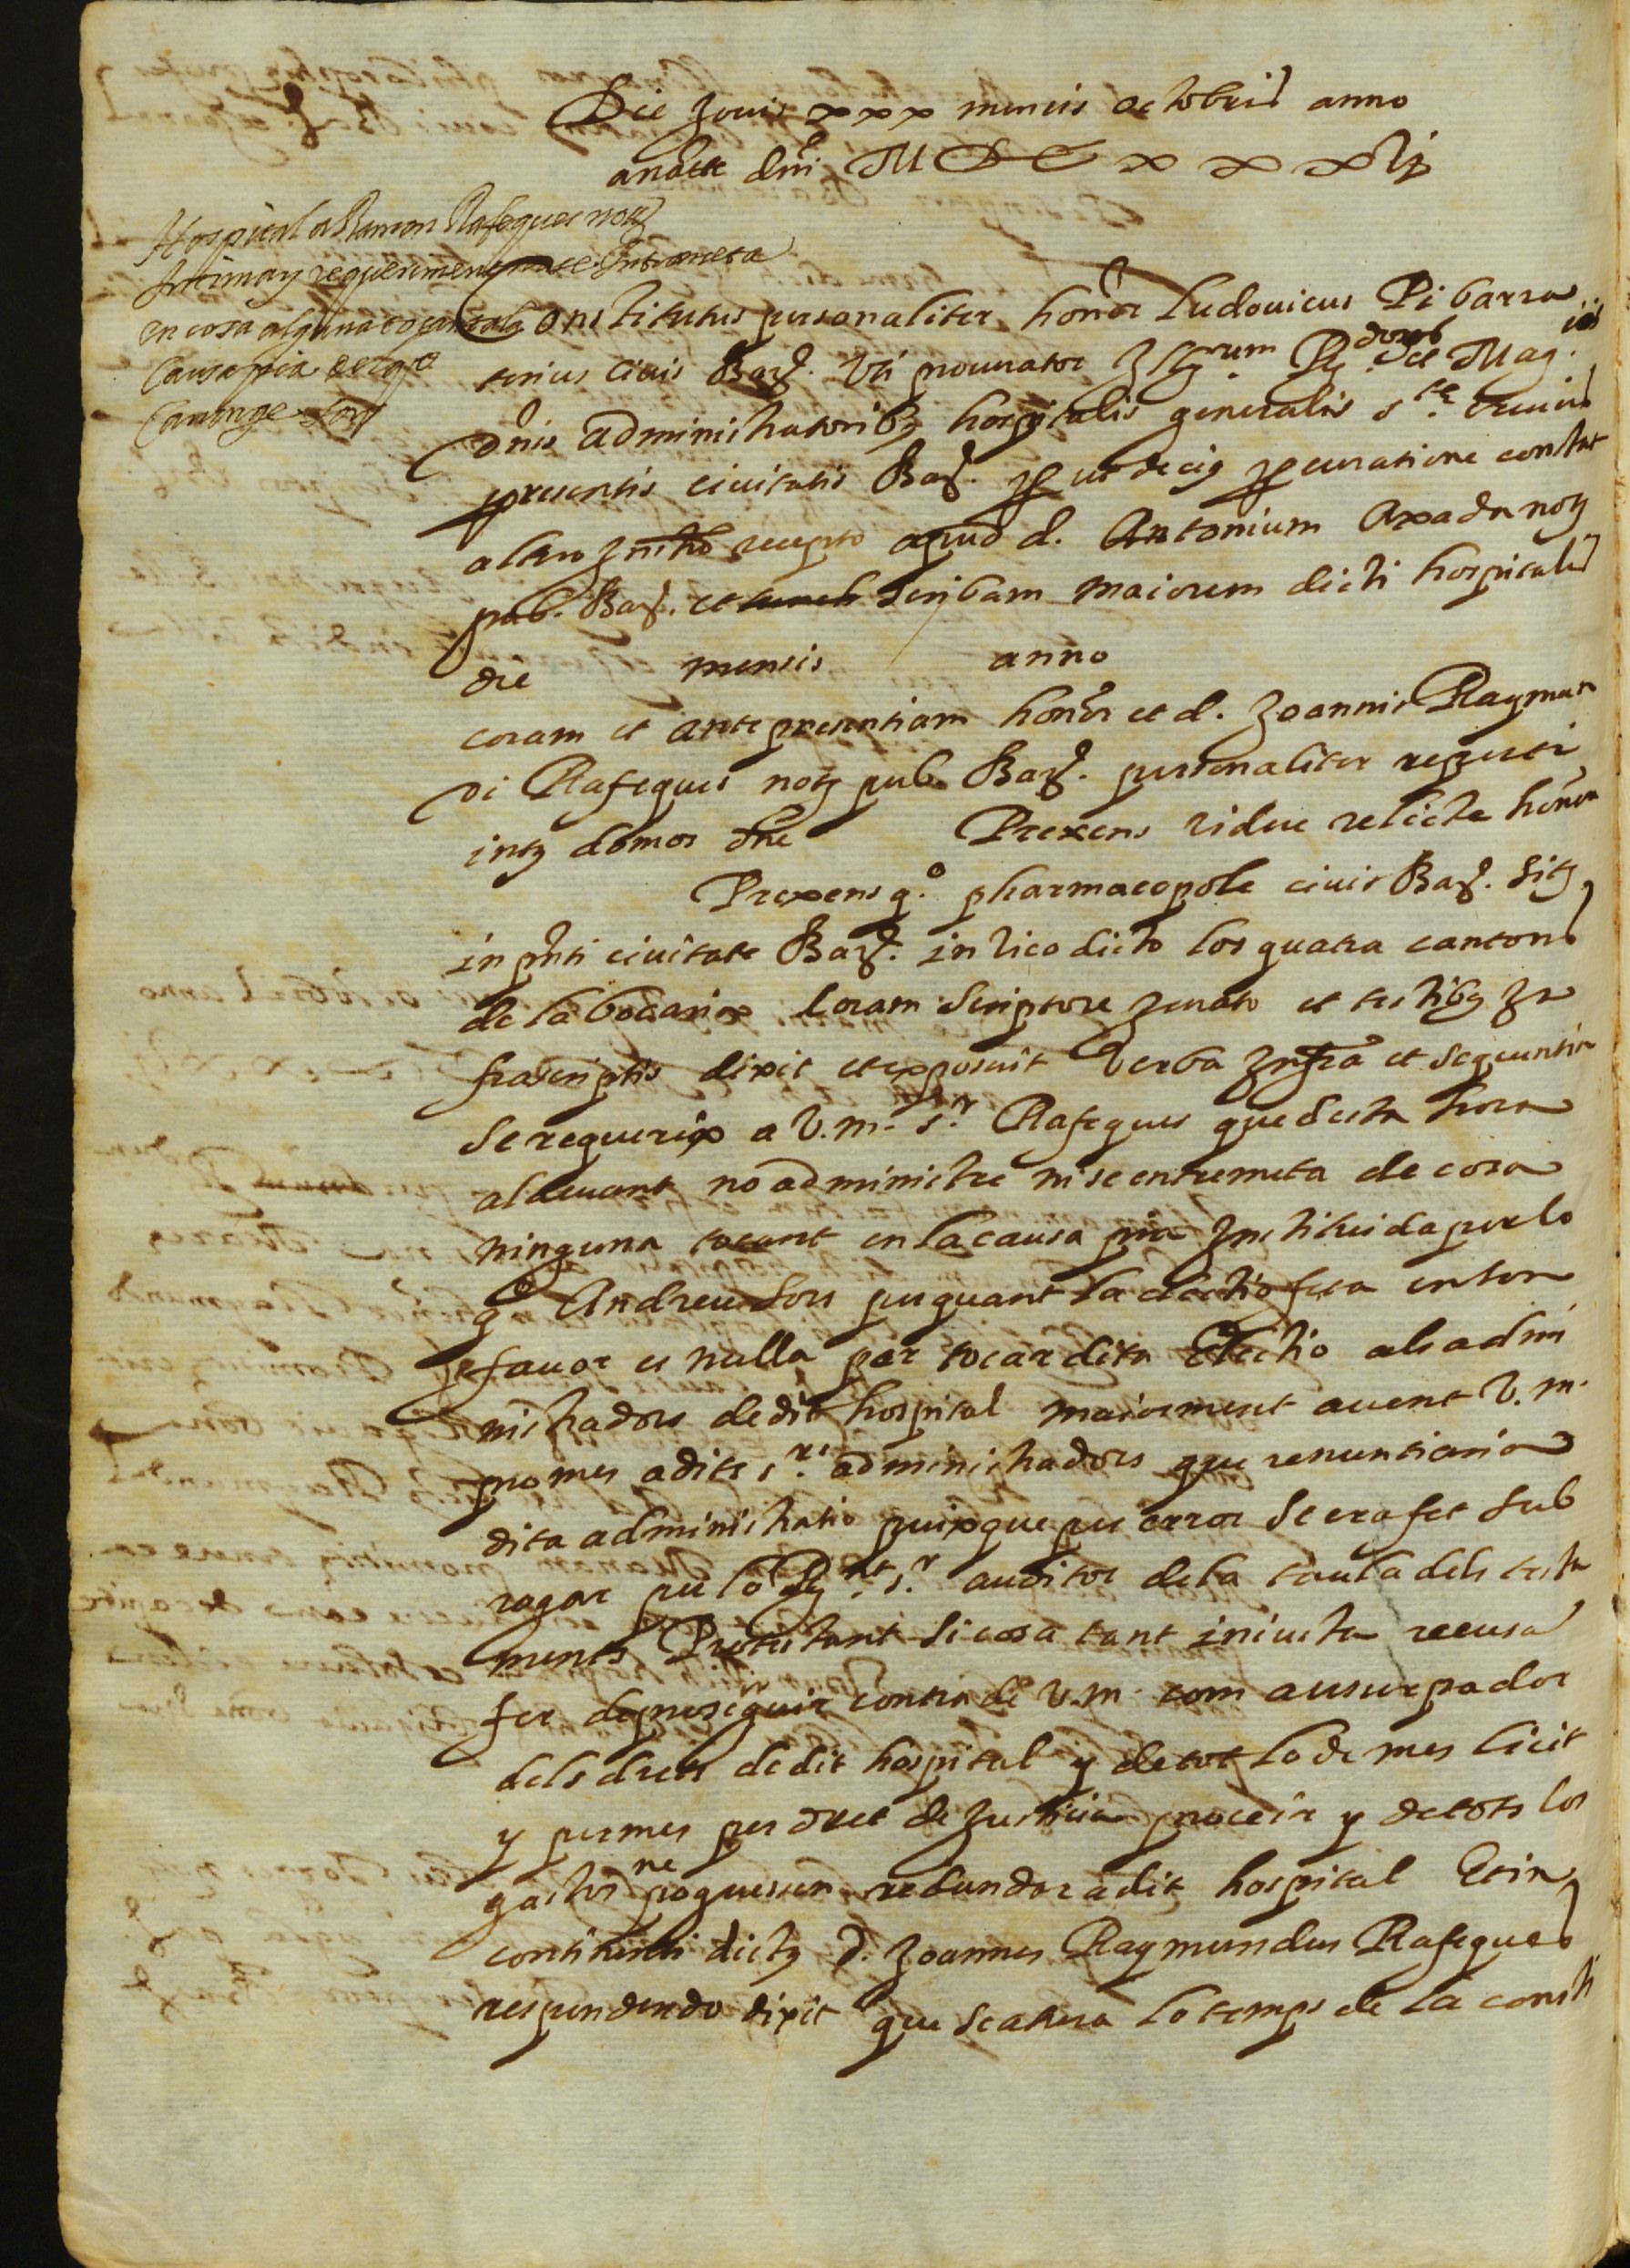 Die Jouis xxx mensis octobris anno
a natte dni MDC x x x vij
Hospital a Ramon Rafeques notj
Intima y requeriment no se entrameta
en cosa alguna tocant a la
Causa pia del qo
Canonge Sors
Constitutus personaliter honor Ludouicus Pi barra
terius ciuis Barz. Vti procurator Illm.rum Rdorum et Mag.cis
dnis administratoribz hospitalis generalis s.te Crucis
presentis ciuitatis Barz. prout de eiz procuratione constat
altero Instro recepto apud d. Antonium Axada notj
pub. Barz. et scribam maiorem dicti hospitalis
die mensis anno
coram et ante presentiam honor et d. Joannis Raymun
di Rafeques notj pub. Barz. personaliter reperti
intz domos dne Prexens vidue relicte honor
Prexens q.o pharmacopole ciuis Barz. sitz
in pnti ciuitate Barz. in vico dicto los quatra cantons
de la bocaria Coram Scriptore Jurato et testibz In
frascriptis dixit et exposuit verba Infra et sequentia
Se requerix a V.m. s.r Rafeques que desta hora
al deuant no administre ni se entremeta de cosa
ninguna tocant en la causa pia Instituida per lo
qo Andreu Sors perquant la electio feta en son
fauor es nulla per tocar dita Electio als admi
nistradors de dit hospital maiorment auent V.m.
promes a dits s.rs administradors que renuntiaria
dita administratio puix que per error se era fet sub
rogar per lo Rnt s.r auditor de la taula dels testa
ments Protestant si cosa tant iniusta recusa
fer de proseguir contra de V.m. com a usurpador
dels drets de dit hospital y de tot lo de mes licit
y permes per dret de Justicia proceir y de tots los
gastos ne poguessen redundar a dit hospital Et in
continenti dictz d. Joannes Raymundus Rafeques
respondendo dixit que se atura lo temps de la consti